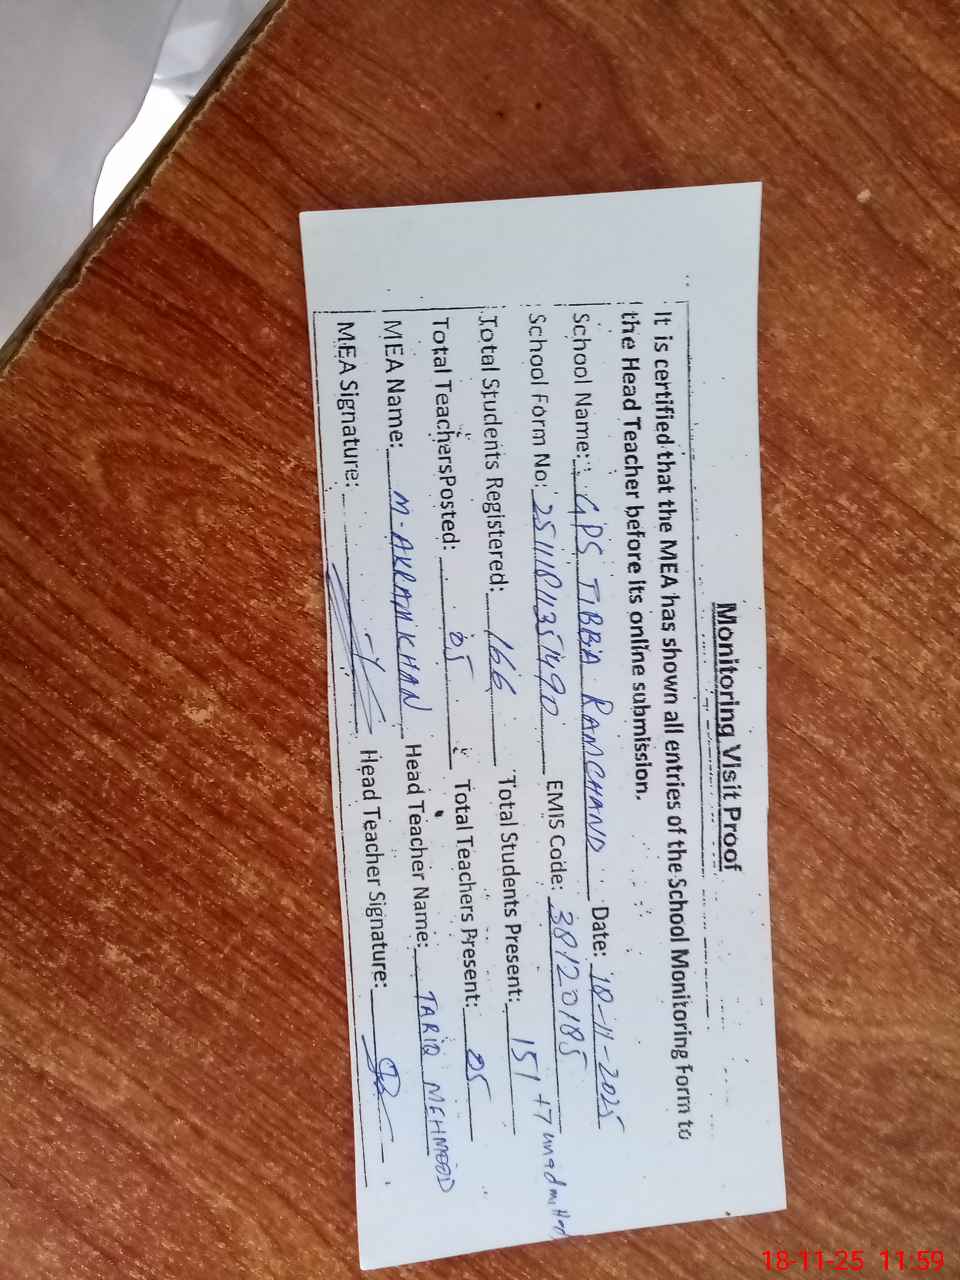 Monitoring Visit Proof
It is certified that the MEA has shown all entries of the School Monitoring Form to
the Head Teacher before its online submission.
School Name: GPS TIBBA RAMCHAND Date: 18-11-2025
School Form No: 25111811351490 EMIS Code: 38120185
Total Students Registered: 166 Total Students Present: 151 +7 unadmitted
Total Teachers Posted: 05 Total Teachers Present: 05
MEA Name: M. AKRAM KHAN Head Teacher Name: TARIQ MEHMOOD
MEA Signature: Head Teacher Signature:
18-11-25 11:59